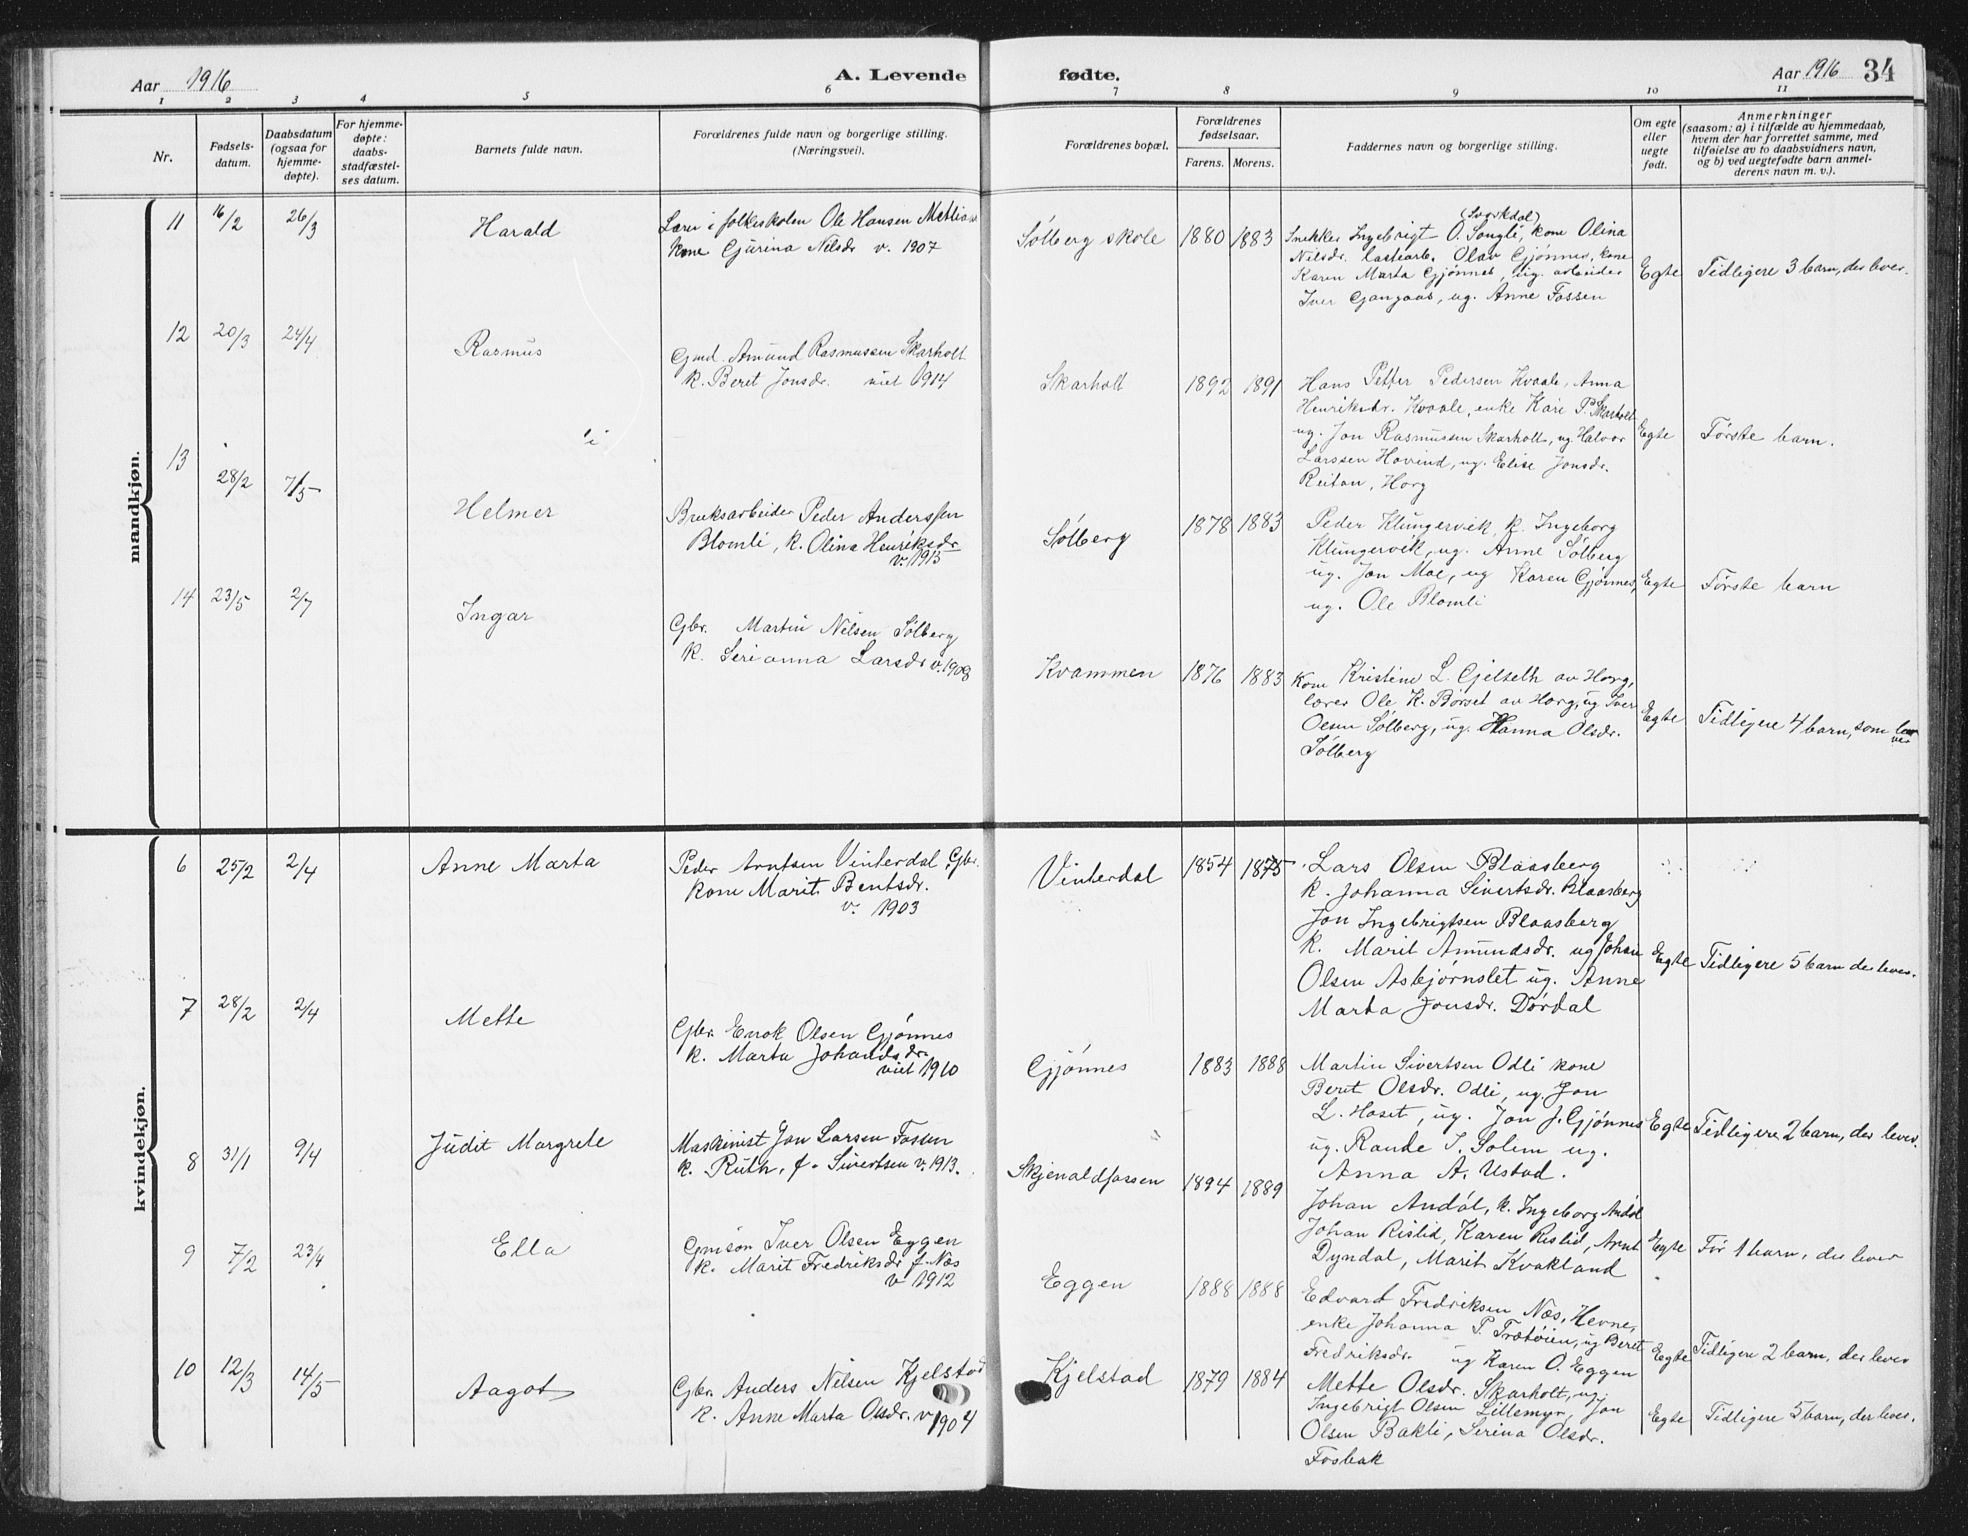 Aar 1916
A. Levende
fødte.
Aar 1916 34
1 2 3 4 5 6 7 8 9 10 11
Nr.
Fødsels-
datum.
Daabsdatum
(ogsaa for
hjemme-
døpte).
For hjemme-
døpte:
daabs-
stadfæstel-
ses datum.
Barnets fulde navn.
Forældrenes fulde navn og borgerlige stilling.
(Næringsvei).
Forældrenes bopæl.
Forældrenes
fødselsaar.
Farens. Morens.
Faddernes navn og borgerlige stilling.
Om egte
eller
uegte
født.
Anmerkninger
(saasom: a) i tilfælde av hjemmedaab,
hvem der har forrettet samme, med
tilføielse av to daabsvidners navn,
og b) ved uegtefødte barn anmel-
derens navn m. v.).
mandkjøn.
11 16/2 26/3 Harald
Lærer i folkeskolen Ole Hansen
kone Gjurina Nilsdr v. 1907
Sólberg skole 1880 1883
(Svorkdal)
Snekker Ingebrigt O. Songli, kone Olina
Nilsdr. Olav Gjønnes, kone
Karen Marta Gjønnes, ug. arbeider
Iver Gangaas, ug. Anne Fossen
Egte Tidligere 3 barn, der lever.
12 20/3 24/4 Rasmus
Gmd. Amund Rasmussen Skarholt
k. Beret Jonsdr. viet 1914
Skarholt 1892 1891
Hans Petter Pedersen Kvaale, Anna
Henriksdr. Kvaale, enke Kari P. Skarholt
ug. Jon Rasmussen Skarholt, ug. Halvor
Larssen Hovind, ug. Elise Jonsdr.
Reitan, Horg
Egte Første barn.
13 28/2 7/5 Helmer
Bruksarbeider Peder Anderssen
Blomli, k. Olina Henriksdr.
v. 1915
Sólberg 1878 1883
Peder Klungervik, k. Ingeborg
Klungervik, ug. Anne Sólberg
ug. Jon Moe, ug Karen Gjønnes,
ug. Ole Blomli
Egte Første barn
14 23/5 2/7 Ingar
Gbr. Martin Nilsen Sólberg
k. Serianna Larsdr v. 1908
Kvammen 1876 1883
Kone Kristine L. Gjelseth av Horg,
lærer Ole K. Børset av Horg, ug Iver
Olsen Sólberg, ug. Hanna Olsdr.
Sólberg
Egte Tidligere 4 barn, som lever
kvindekjøn.
6 25/2 2/4 Anne Marta
Peder Arntsen Vinterdal, Gbr.
kone Marit Bentsdr.
v. 1903
Vinterdal 1854 1875
Lars Olsen Blaasberg
k. Johanna Sivertsdr. Blaasberg
Jon Ingebrigtsen Blaasberg
k. Marit Amundsdr. ug Johan
Olsen Asbjørnslet ug. Anne
Marta Jonsdr. Dørdal
Egte Tidligere 5 barn der lever.
7 28/2 2/4 Mette
Gbr. Enok Olsen Gjønnes
k. Marta Johansdr.
viet 1910
Gjønnes 1883 1888
Martin Sivertsen Odli kone
Beret Olsdr. Odli, ug. Jon
L. Hoset, ug. Jon J. Gjønnes
ug. Rande I. Solem ug.
Anna A. Ustad.
Egte Tidligere 2 barn, der lever.
8 31/1 9/4 Judit Margrete
Maskinist Jon Larsen Fossen
k. Ruth, f. Sivertsen v. 1913.
Skjenaldfossen 1894 1889
Johan Andól, k. Ingeborg Andól
Johan Rislid, Karen Rislid, Arnt
Dyndal, Marit Kvakland
Egte Før 1 barn, der lever
9 7/2 23/4 Ella
Gmsøn Iver Olsen Eggen
k. Marit Fredriksdr f. Næs
v. 1912
Eggen 1888 1888
Edvard Fredriksen Næs, Hevne,
enke Johanna P. Trætøien, ug Beret
Fredriksdr. ug Karen O. Eggen
Egte Tidligere 2 barn, der lever
10 12/3 14/5 Aagot
Gbr. Anders Nilsen Kjelstad
k. Anne Marta Olsdr. v. 1904
Kjelstad 1879 1884
Mette Olsdr. Skarholt, ug.
Ingebrigt Olsen Lillemyr, Jon
Olsen Bakli, Serina Olsdr.
Fosbak
Egte Tidligere 5 barn, der lever.